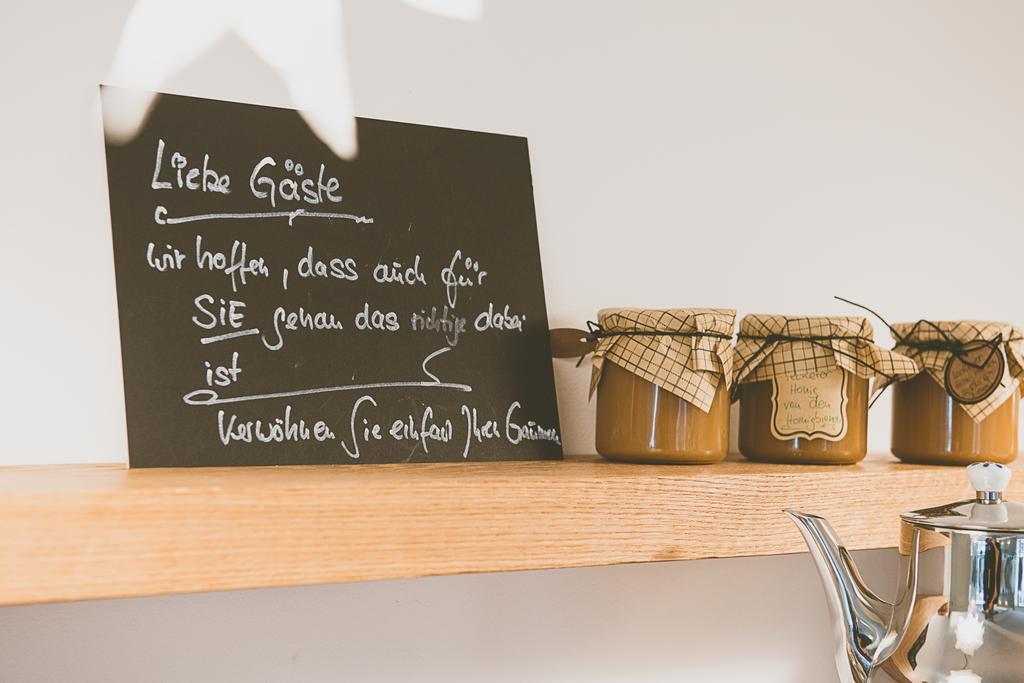 Liebe Gäste
wir hoffen, dass auch für
SiE genau das richtige dabei
ist
Verwöhnen Sie einfach Ihren Gaumen
Honig
von den
Honigbienen